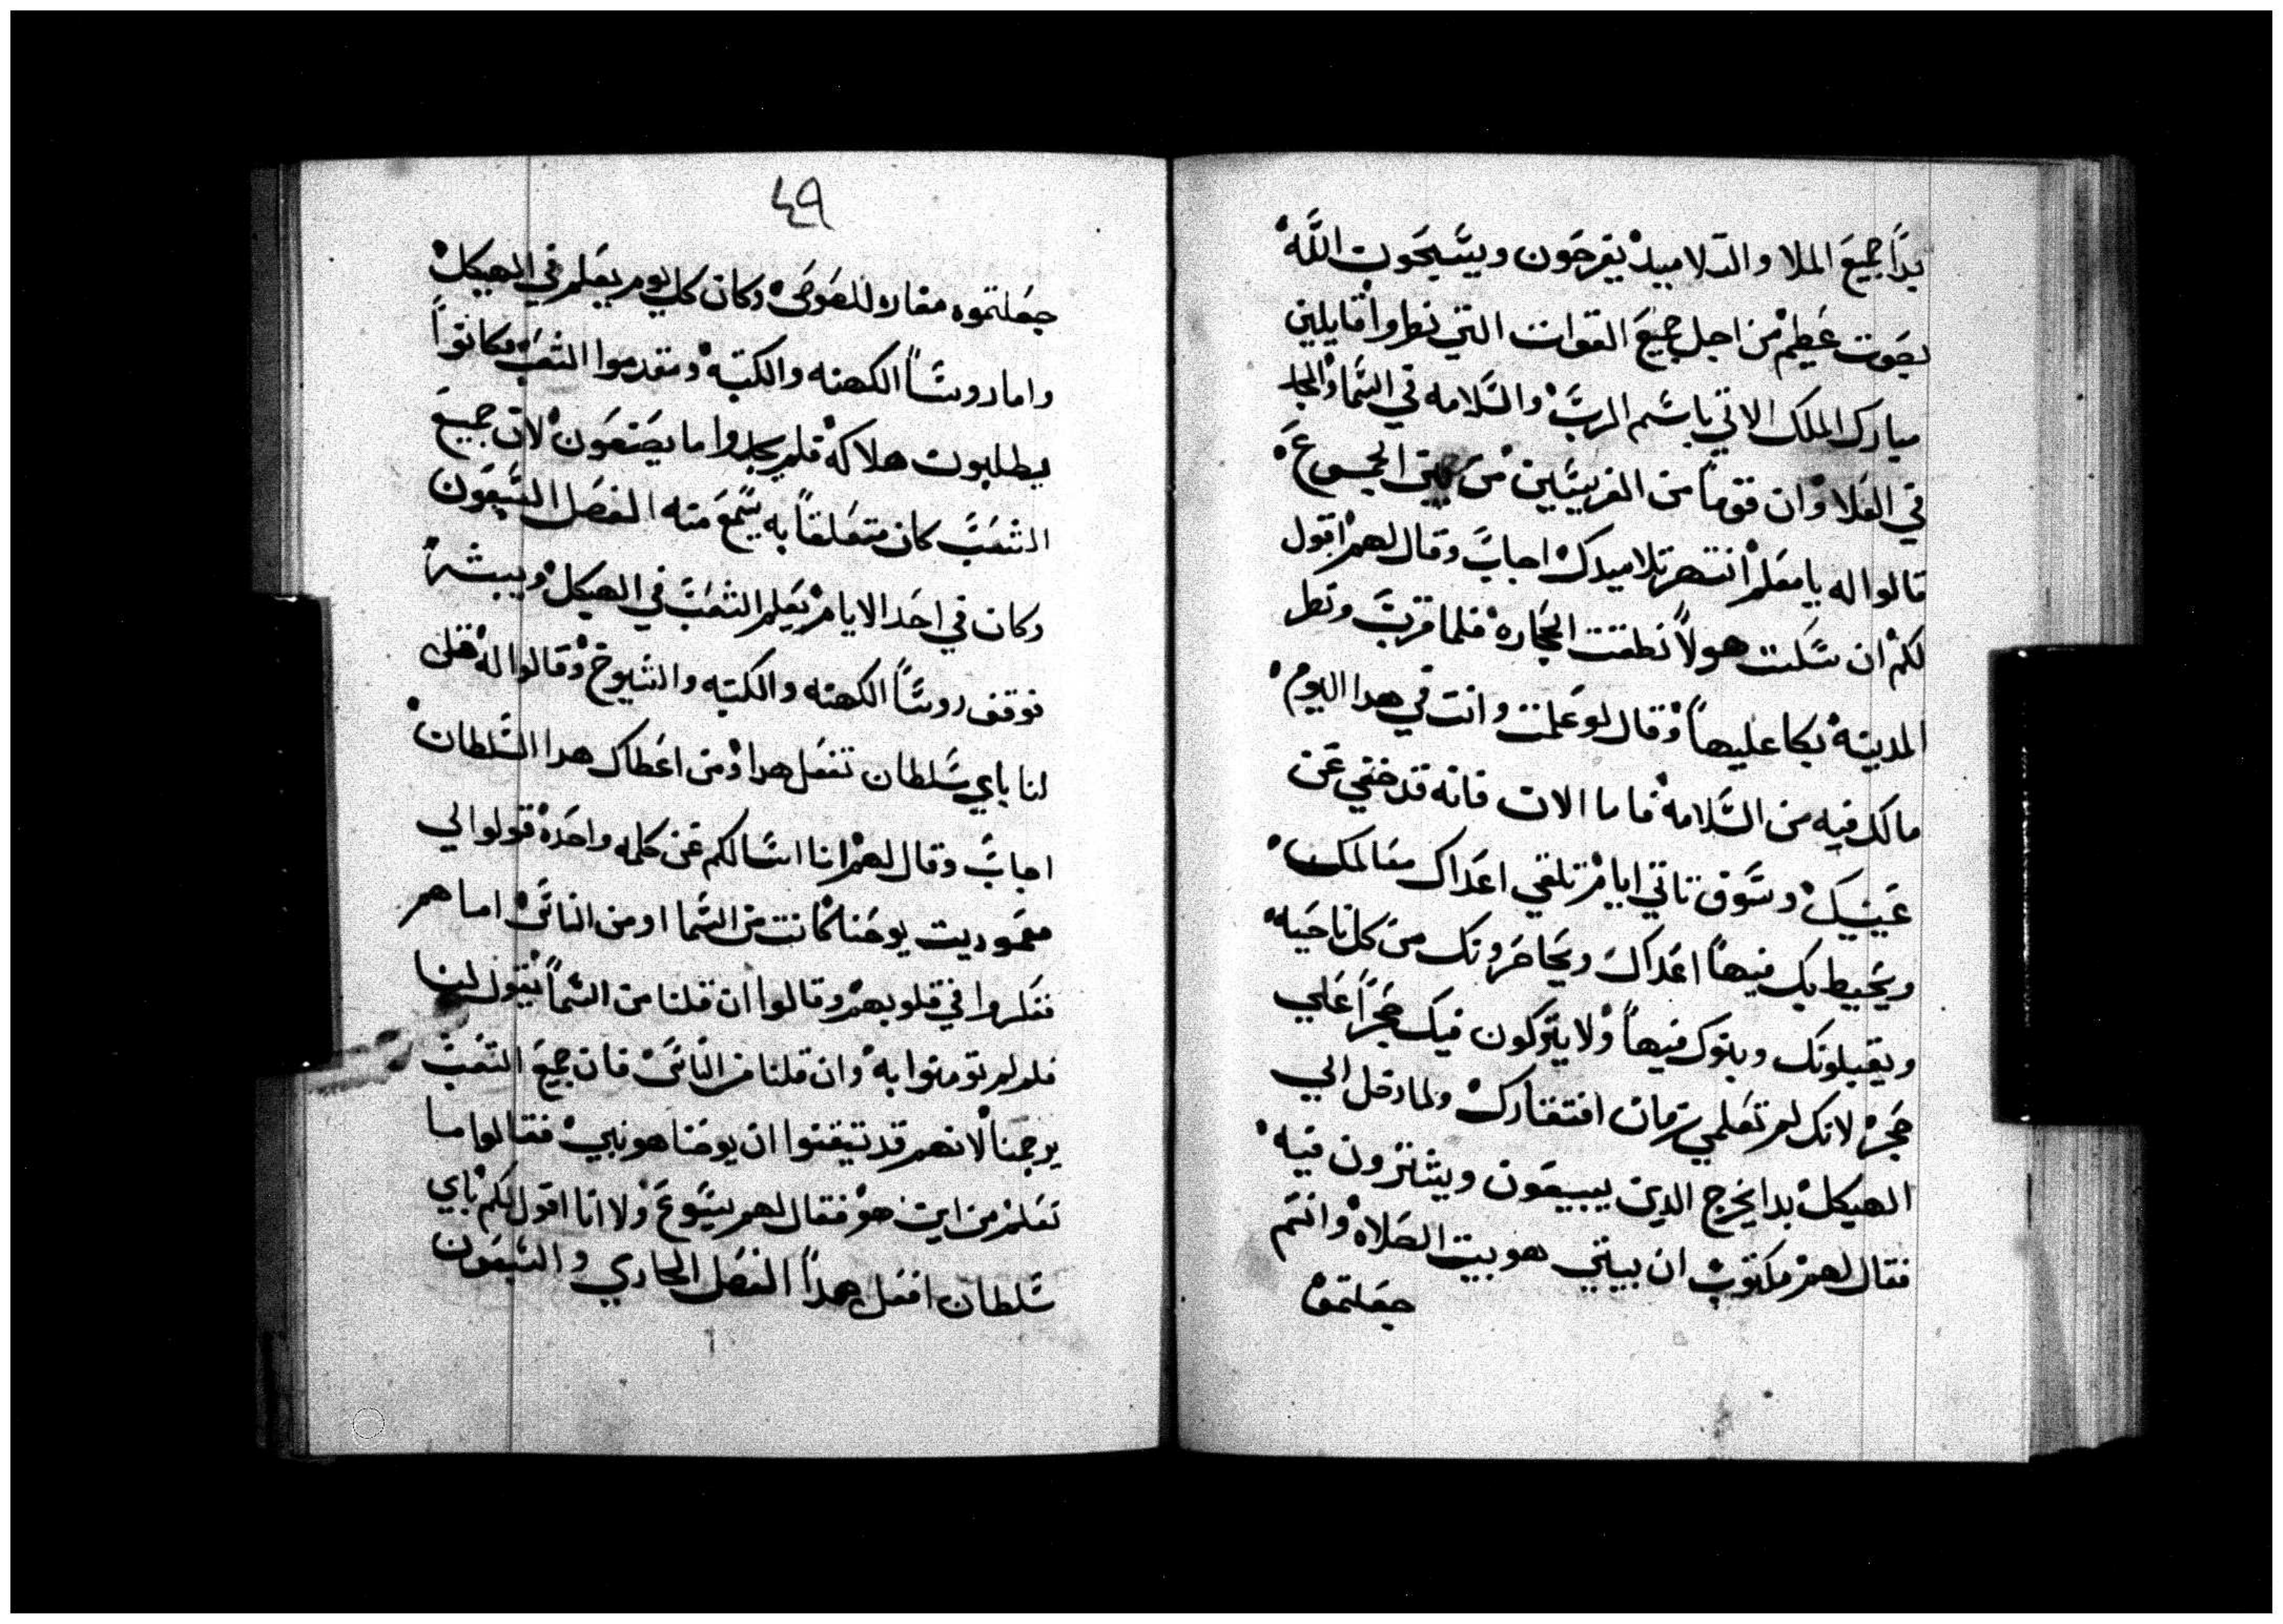 بدا جميع الملا والتلاميد يفرحون ويسبحون الله
بصوت عظيم من اجل جميع القوات التي نظروا قايلين
مبارك الملك الاتي باسم الرب والسلامه في السما والمجد
في العلا وان قوما من الفريسيين من بين الجموع
قالوا له يا معلم انتهر تلاميدك اجاب وقال لهم اقول
لكم ان سكت هولا نطقت الحجاره فلما قرب ونظر
المدينه بكا عليها وقال لو علمت وانت في هدا اليوم
مالك فيه من السلامه فاما الان فانه قد خفي عن
عينيك وسوف تاتي ايام تلقي اعداك معالمك
ويحيط بك فيها اعداك ويحاصرونك من كل ناحيه
ويقبلونك وبنوك فيها ولا يتركون فيك حجرا علي
حجر لانك لم تعلمي زمان افتقادك ولما دخل الي
الهيكل بدا يخرج الدين يبيعون ويشترون فيه
فقال لهم مكتوب ان بيتي هو بيت الصلاه وانتم
جعلتموه
٤٩
جعلتموه مغاره للصوص وكان كل يوم يعلم في الهيكل
واما روسا الكهنه والكتبه ومتقدموا الشعب فكانوا
يطلبون هلاكه فلم يجدوا ما يصنعون لان جميع
الشعب كان متعلقا به يسمع منه الفصل السبعون
وكان في احد الايام يعلم الشعب في الهيكل ويبشر
فوقف روسا الكهنه والكتبه والشيوخ وقالوا له قل
لنا باي سلطان تفعل هدا ومن اعطاك هدا السلطان
اجاب وقال لهم انا اسالكم عن كلمه واحده قولوا لي
معموديت يوحنا كانت من السما او من الناس اما هم
ففكروا في قلوبهم وقالوا ان قلنا من السما يقول لنا
فلم لم تومنوا به وان قلنا من الناس فان جميع الشعب
يرجمنا لانهم قد تيقنوا ان يوحنا هو نبي فقالوا ما
نعلم من اين هو فقال لهم يسوع ولا انا اقول لكم باي
سلطان افعل هدا الفصل الحادي والسبعون